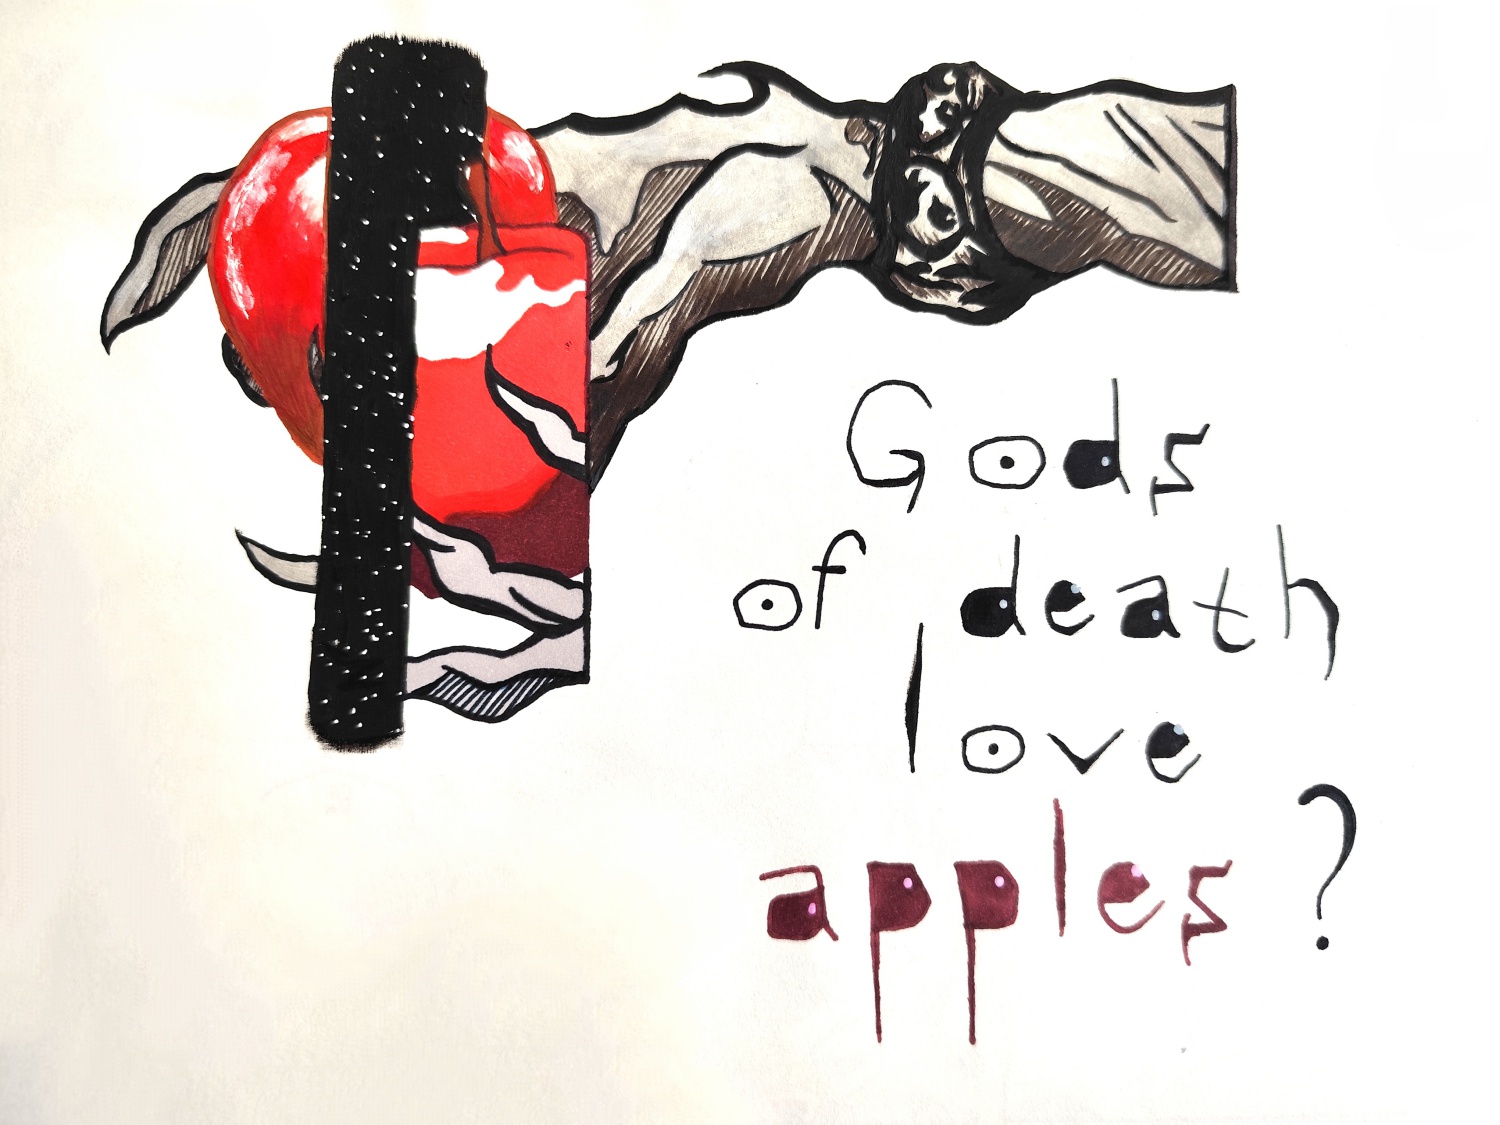 Gods
of death
love
apples?